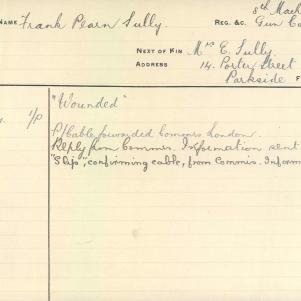 8th Mach
NAME Frank Pearn Sully. REG. &C. Gun Co
NEXT OF KIN Mrs E. Sully.
ADDRESS 14. Porter Street
Parkside F
"Wounded"
1/p
P/Cable forwarded Commrs London.
Reply from Commrs. Information sent
"Slip", confirming cable, from Commis. Inform